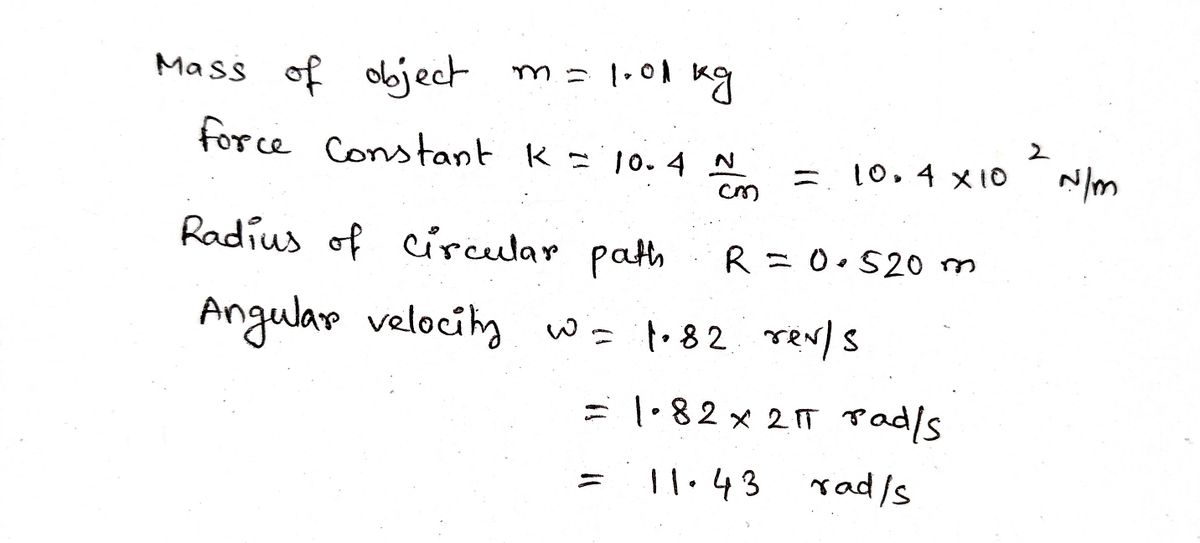 Mass of object m = 1.01 kg
Force Constant K = 10.4 N/cm = 10.4 × 10² N/m
Radius of circular path R = 0.520 m
Angular velocity ω = 1.82 rev/s
= 1.82 × 2π rad/s
= 11.43 rad/s